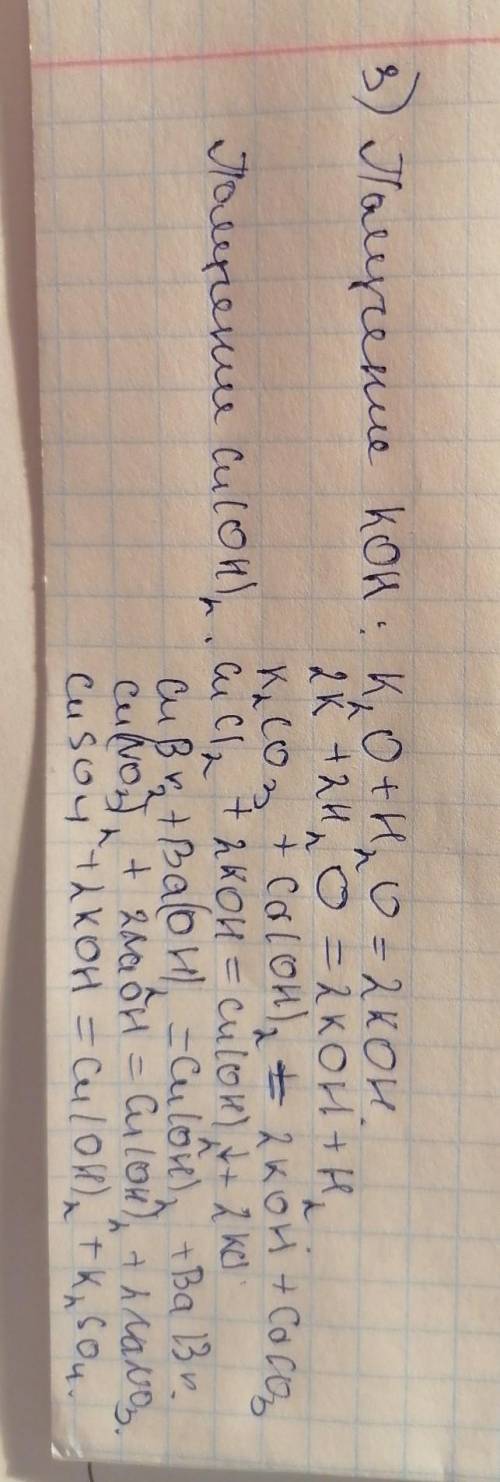 3) Получение KOH: K₂O + H₂O = 2KOH.
2K + 2H₂O = 2KOH + H₂
K₂CO₃ + Ca(OH)₂ = 2KOH + CaCO₃
Получение Cu(OH)₂. CuCl₂ + 2KOH = Cu(OH)₂↓ + 2KCl.
CuBr₂ + Ba(OH)₂ = Cu(OH)₂ + BaBr.
Cu(NO₃)₂ + 2NaOH = Cu(OH)₂ + 2NaNO₃.
CuSO₄ + 2KOH = Cu(OH)₂ + K₂SO₄.